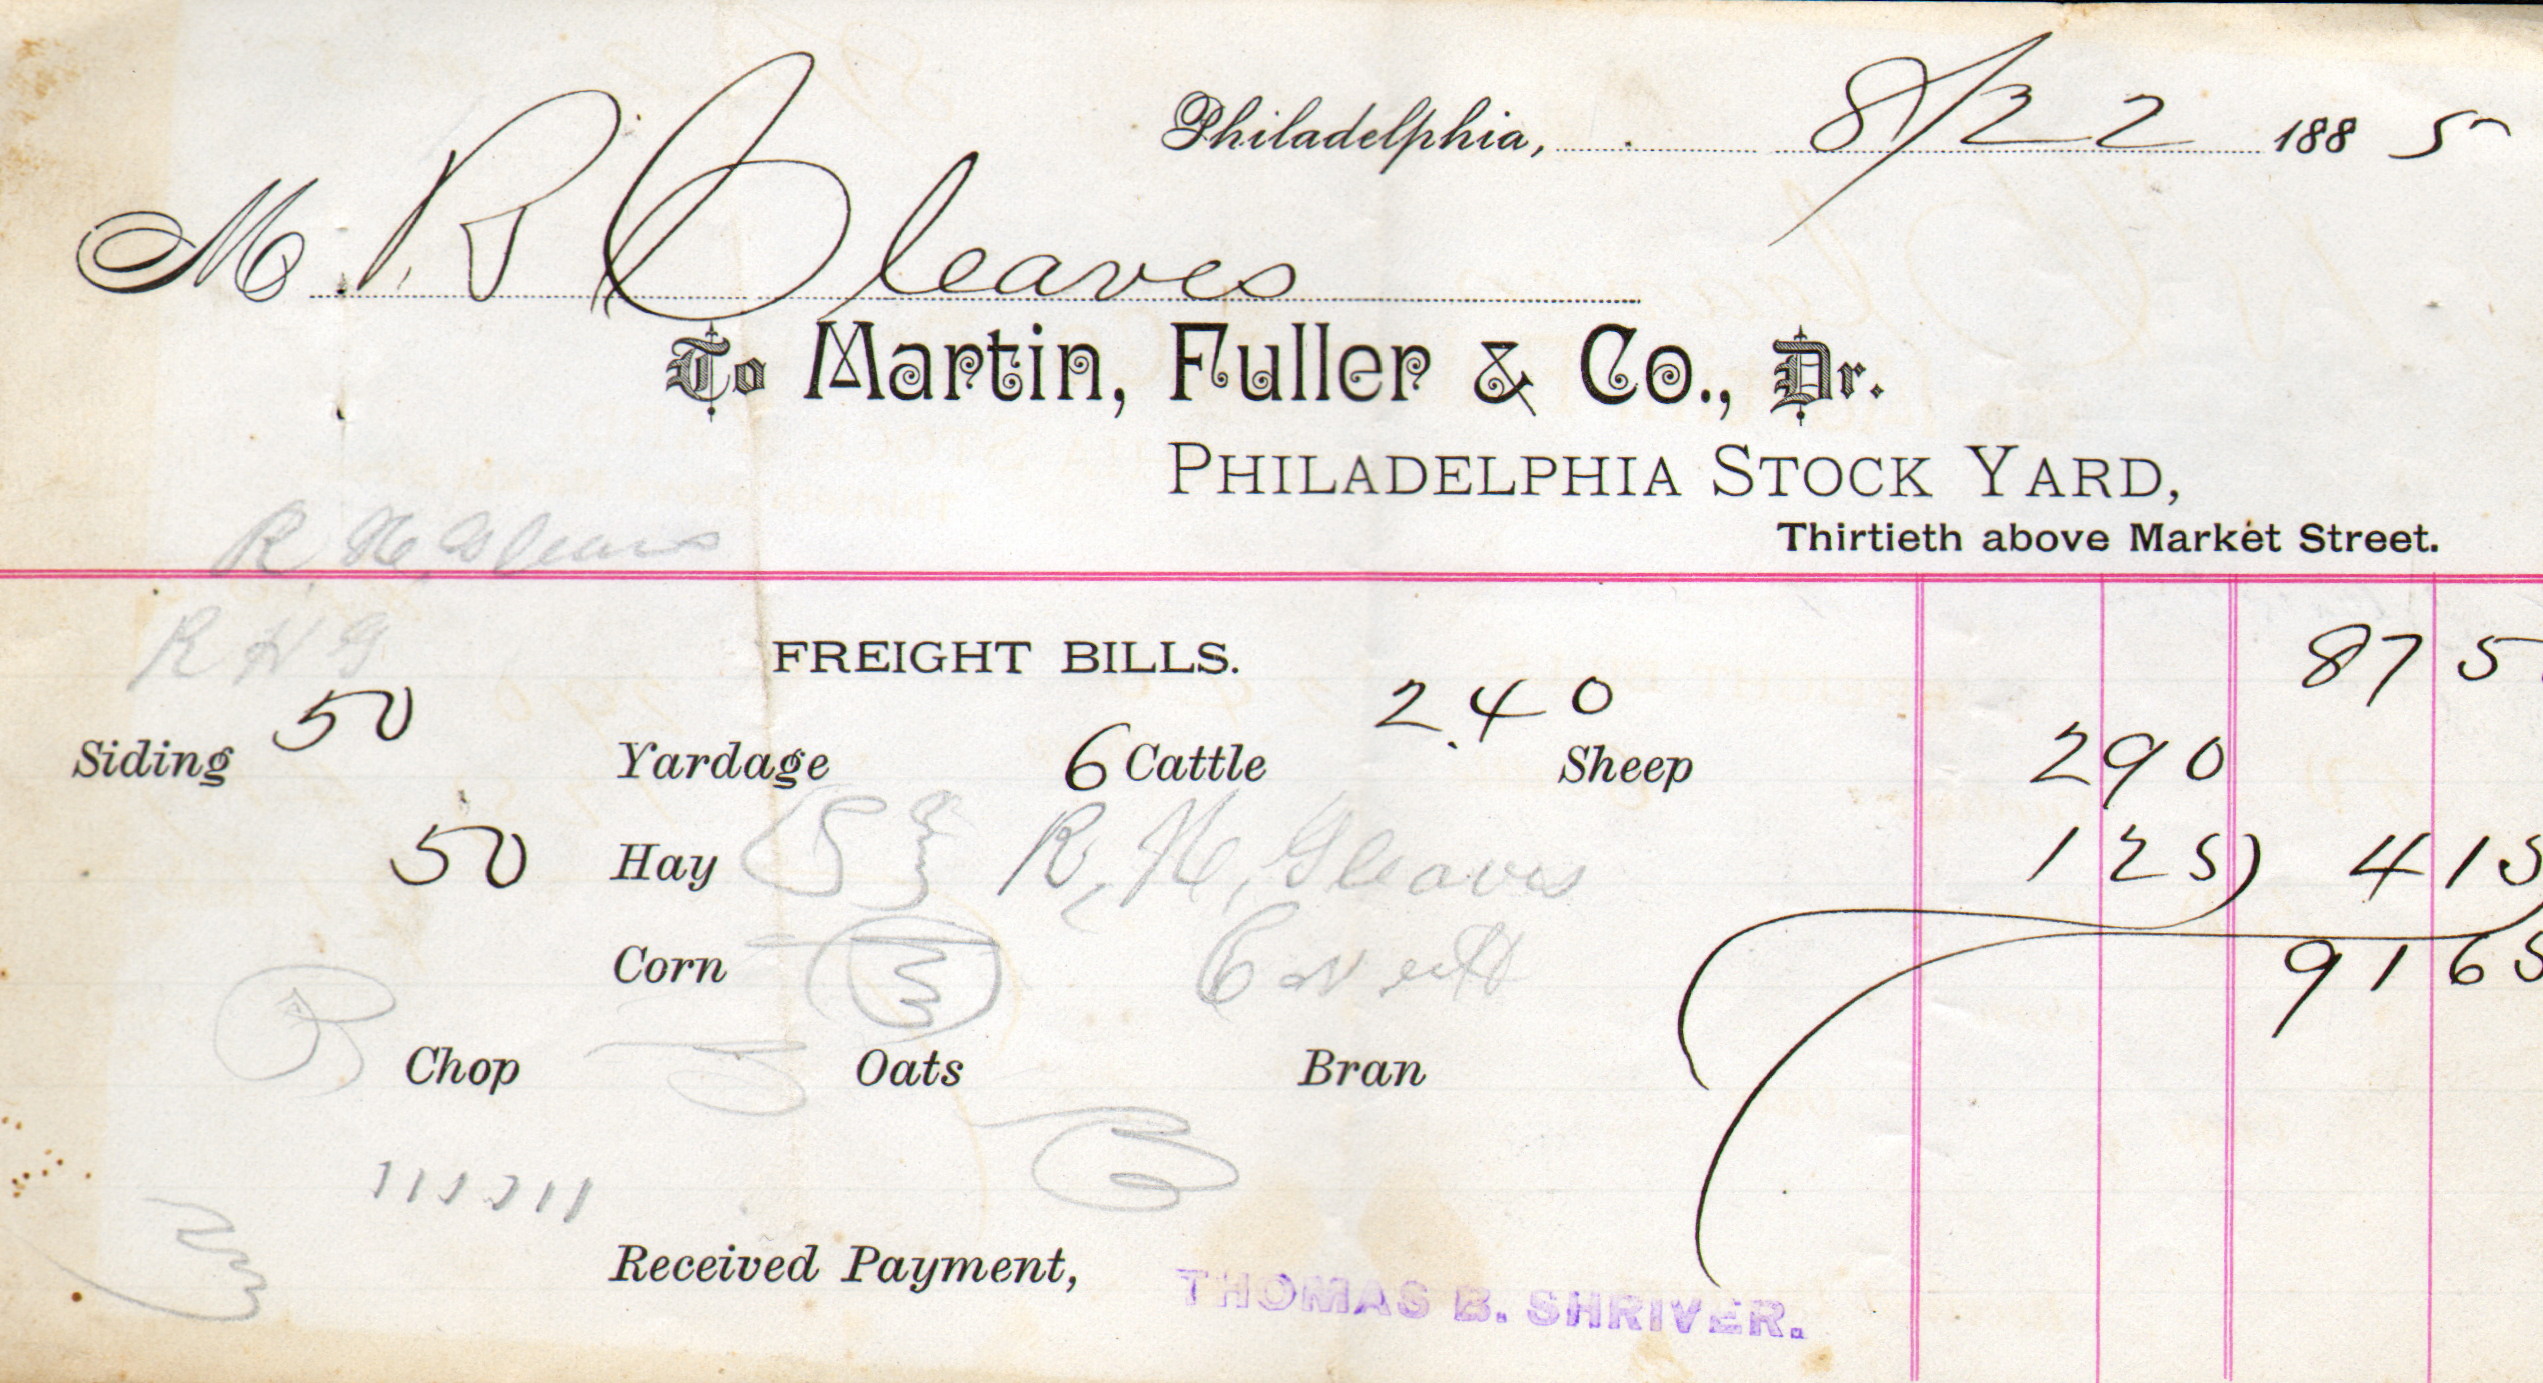 Philadelphia, 8/22 1885
M R Gleaves
To Martin, Fuller & Co., Dr.
PHILADELPHIA STOCK YARD,
Thirtieth above Market Street.
R. H. Gleaves
R H G
FREIGHT BILLS. 87 5
Siding 50 Yardage 6 Cattle 2.40 Sheep 2 90
50 Hay 1 25) 4 15
R. H. Gleaves
Corn 91 65
Chop Oats Bran
Received Payment,
THOMAS B. SHRIVER.